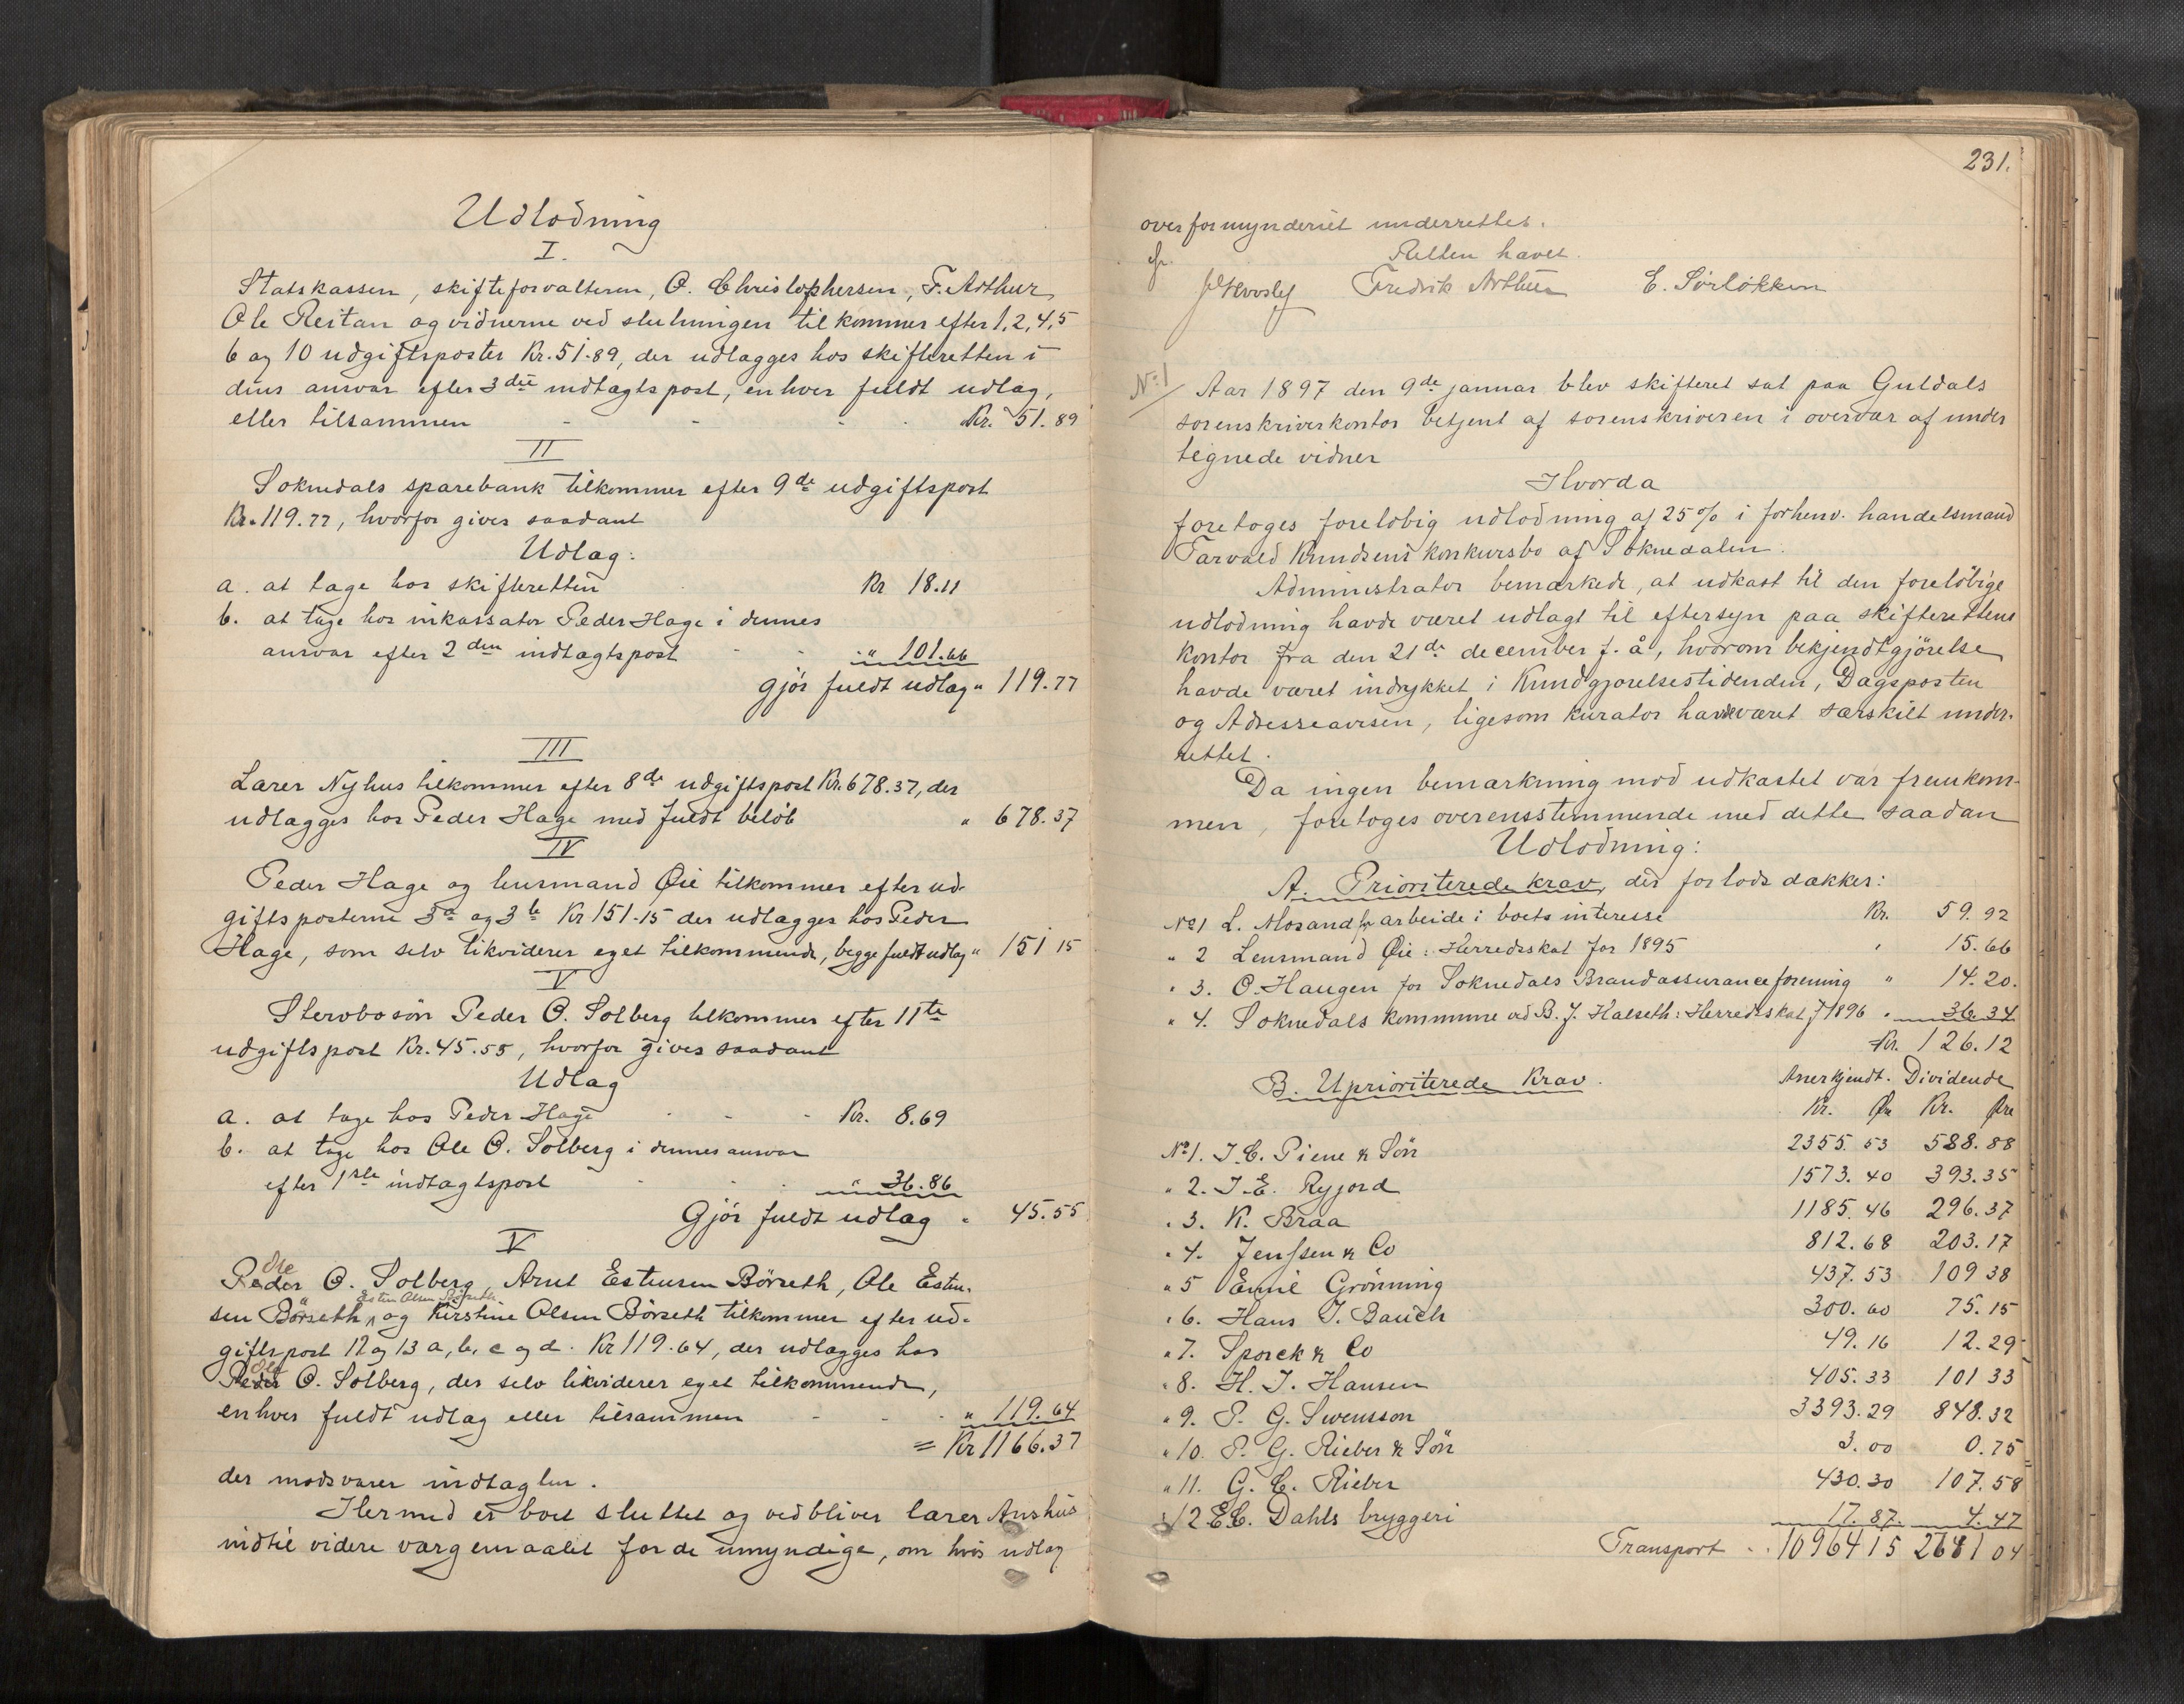 Udlodning
I.
Statskassen, skifteforvalteren, O. Christophersen, F. Arthur
Ole Reitan og vidnerne ved slutningen tilkommer efter 1, 2, 4, 5
6 og 10 udgiftsposter Kr. 51.89, der udlægges hos skifteretten i
dens ansvar efter 3die indtagtspost, enhver fuldt udlag,
eller tilsammen - - - - Kr. 51.89
II
Soknedals sparebank tilkommer efter 9de udgiftspost
Kr. 119.77, hvorfor gives saadant
Udlag:
a. at tage hos skifteretten Kr 18.11
b. at tage hos inkassator Peder Hage i dennes
ansvar efter 2den indtagtspost - - " 101.66
gjør fuldt udlag " 119.77
III
Lærer Nyhus tilkommer efter 8de udgiftspost Kr. 678.37, der
udlægges hos Peder Hage med fuldt beløb " 678.37
IV
Peder Hage og lensmand Øie tilkommer efter ud-
giftsposterne 3a og 3b Kr 151.15 der udlægges hos Peder
Hage, som selv likviderer eget tilkommende, begge fuldt udlag " 151 15
V
Stervbosøn Peder O. Solberg tilkommer efter 11te
udgiftspost Kr. 45.55, hvorfor gives saadant
Udlag
a. at tage hos Peder Hage - - - Kr. 8.69
b. at tage hos Ole O. Solberg i dennes ansvar
efter 1ste indtagtspost - - - " 36.86
Gjør fuldt udlag " 45.55
V
Ole
Peder O. Solberg, Arnt Estensen Børseth, Ole Esten-
Esten Olsen Børseth
sen Børseth, og Kirstine Olsen Børseth tilkommer efter ud-
giftspost 12 og 13 a, b, c og d. Kr 119.64, der udlægges hos
Ole
Peder O. Solberg, der selv likviderer eget tilkommende,
enhver fuldt udlag eller tilsammen - - - " 119.64
= Kr 1166.37
der modsvarer indtagten.
Hermed er boet sluttet og vedbliver lærer Aushus
indtil videre værgemaalet for de umyndige, om hvis udlag
231.
overformynderiet underrettes.
Retten hævet.
Fredrik Arthur E. Sørløkken
No 1
Aar 1897 den 9de januar blev skifteret sat paa Guldals
sorenskriverkontor betjent af sorenskriveren i overvær af under
tegnede vidner
Hvorda
foretoges foreløbig udlodning af 25% i forhenv. handelsmand
Tarvald Knudsens konkursbo af Soknedalen.
Administrator bemærkede, at udkast til den foreløbige
udlodning havde været udlagt til eftersyn paa skifterettens
kontor fra den 21de december f. å, hvorom bekjendtgjørelse
havde været indrykket i Kundgjørelsestidenden, Dagsposten
og Adresseavisen, ligesom kurator havde været særskilt under-
rettet.
Da ingen bemærkning mod udkastet var fremkom-
men, foretoges overensstemmende med dette saadan
Udlodning:
A. Prioriterede krav, der forlods dækkes:
No 1 L. Mosand for arbeide i boets interesse Kr. 59.92
" 2 Lensmand Øie: Herredsskat for 1895 " 15.66
" 3. O. Haugen for Soknedals Brandassuranceforening " 14.20.
" 4. Soknedals kommune ved B. J. Halseth: Herredsskat f 1896 " 36 34
Kr. 126.12
B. Uprioriterede Krav. Anerkjendt. Dividende
Kr. Øre Kr. Øre
No 1. I. C. Piene & Søn 2355.53 588.88
" 2. J. E. Ryjord 1573.40 393.35
" 3. K. Braa 1185.46 296.37
" 4. Jenssen & Co 812.68 203.17
" 5 Emil Grønning 437.53 109 38
" 6. Hans J. Bauch 300.60 75.15
" 7. Sporck & Co 49.16 12.29
" 8. H. J. Hansen 405.33 101 33
" 9. P. G. Svensson 3393.29 848.32
" 10. P. G. Rieber & Søn 3.00 0.75
" 11. G. C. Rieber 430.30 107.58
" 12 E. C. Dahls bryggeri 17.87. 4.47
Transport . . 10964 15 2681 04